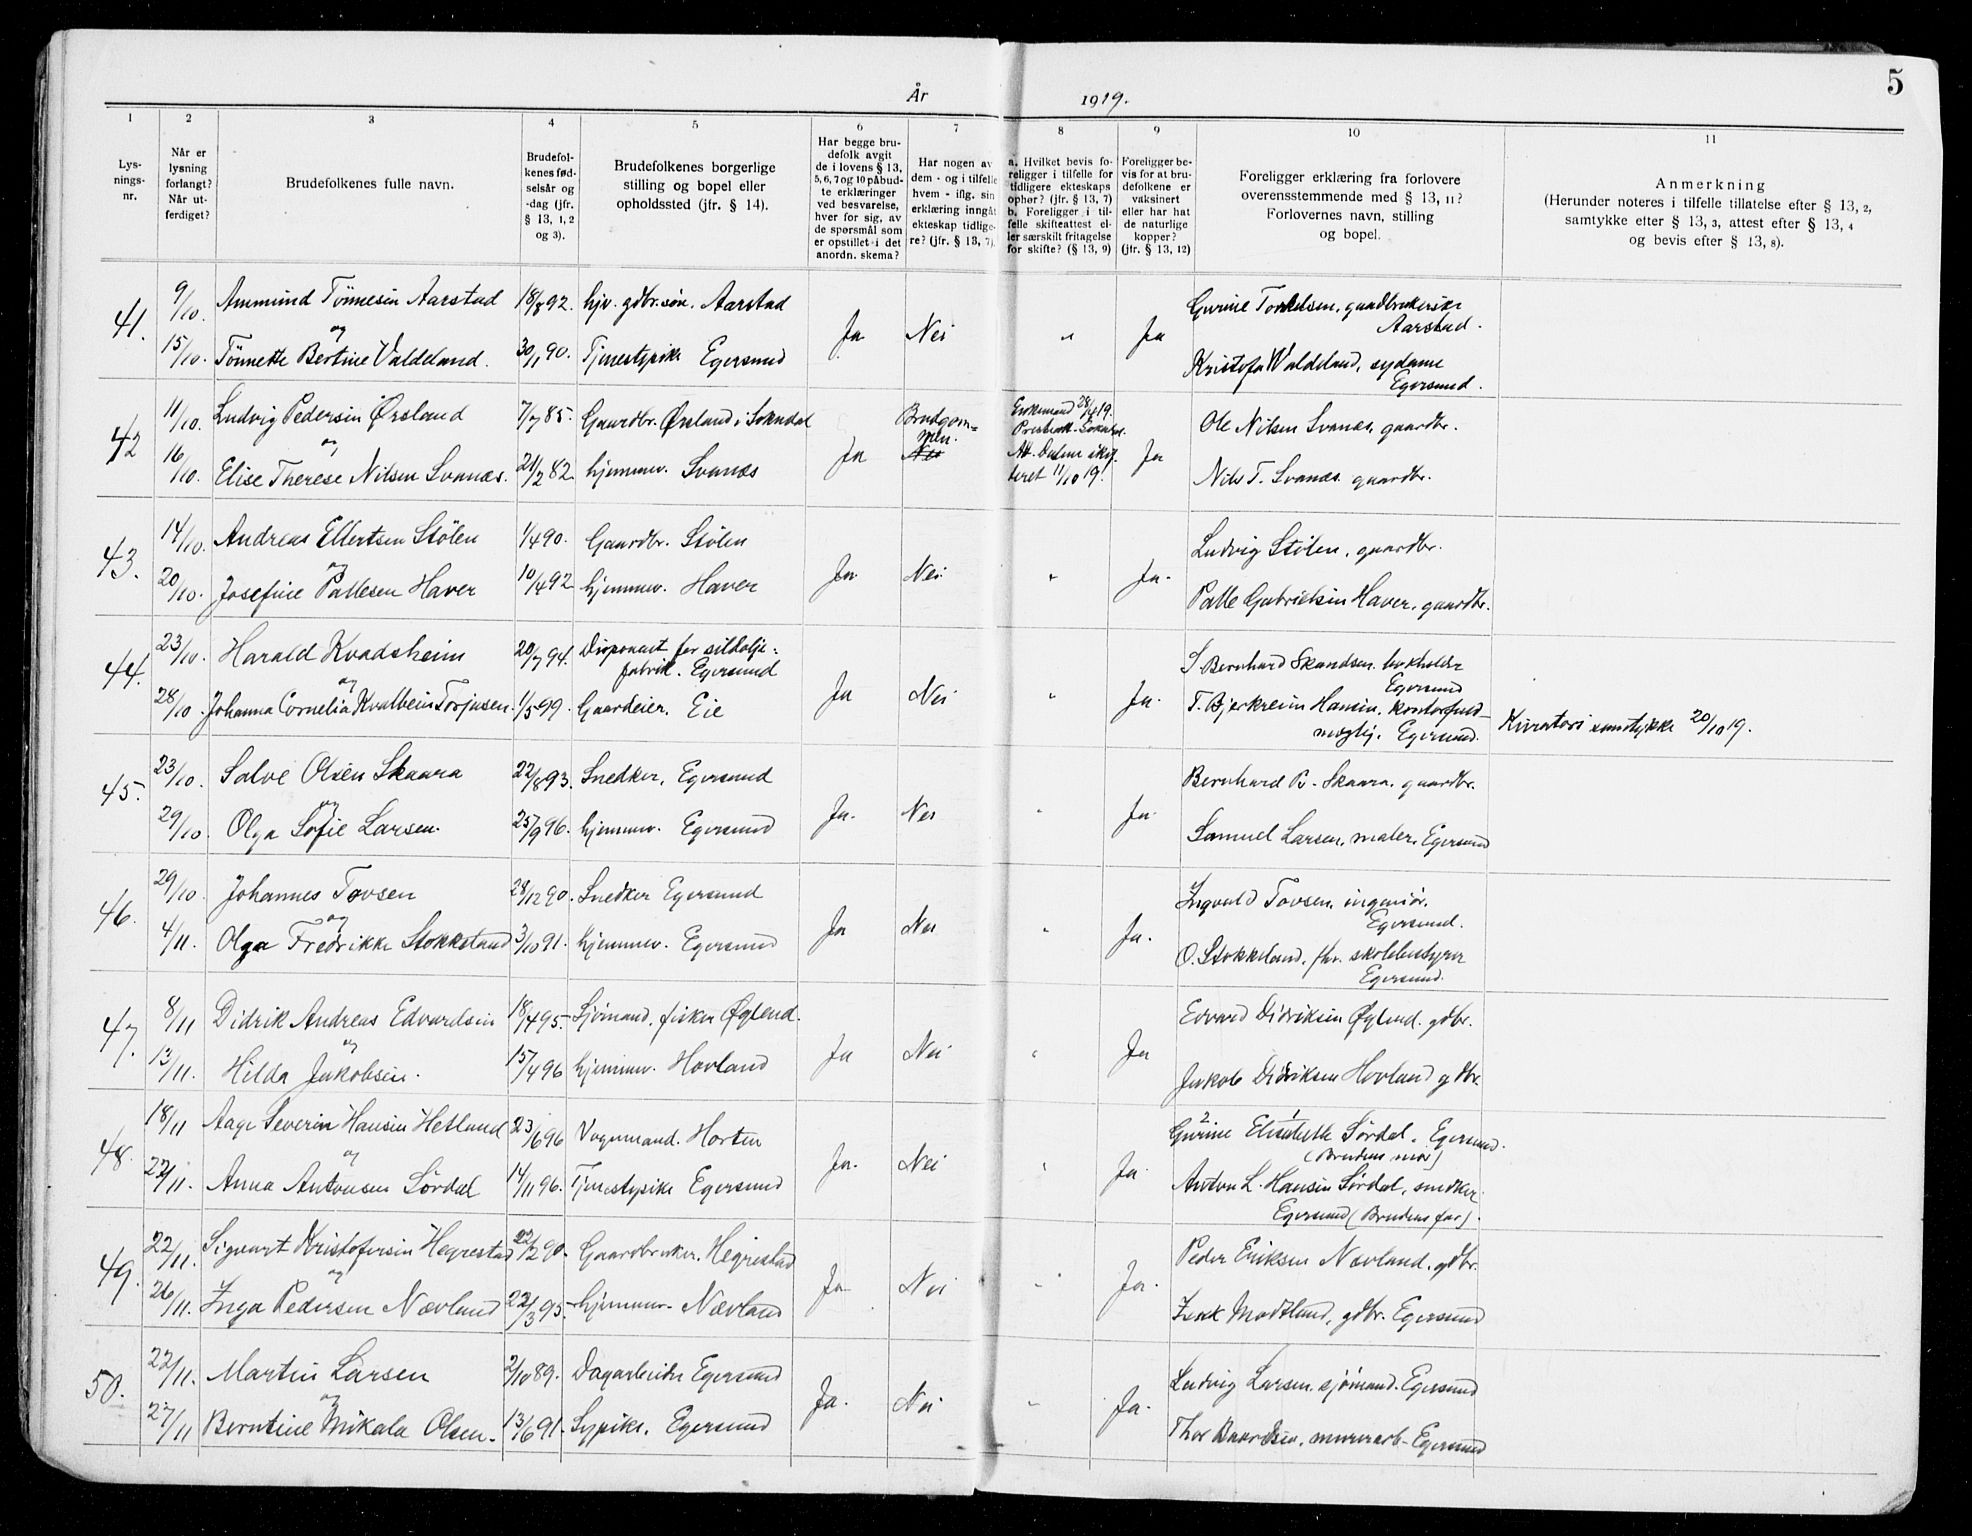 5
År 1919.
1 2 3 4 5 6 7 8 9 10 11
Lys-
nings-
nr.
Når er
lysning
forlangt?
Når ut-
ferdiget?
Brudefolkenes fulle navn.
Brudefol-
kenes fød-
selsår og
-dag (jfr.
§ 13, 1, 2
og 3).
Brudefolkenes borgerlige
stilling og bopel eller
opholdssted (jfr. § 14).
Har begge bru-
defolk avgit
de i lovens § 13,
5, 6, 7 og 10 påbud-
te erklæringer
ved besvarelse,
hver for sig, av
de spørsmål som
er opstillet i det
anordn. skema?
Har nogen av
dem - og i tilfelle
hvem - iflg. sin
erklæring inngåt
ekteskap tidlige-
re? (jfr. § 13, 7).
a. Hvilket bevis fo-
religger i tilfelle for
tidligere ekteskaps
ophør? (jfr. § 13, 7)
b. Foreligger i til-
felle skifteattest el-
ler særskilt fritagelse
for skifte? (§ 13, 9)
Foreligger be-
vis for at bru-
defolkene er
vaksinert
eller har hat
de naturlige
kopper?
(jfr. § 13, 12)
Foreligger erklæring fra forlovere
overensstemmende med § 13, 11?
Forlovernes navn, stilling
og bopel.
Anmerkning
(Herunder noteres i tilfelle tillatelse efter § 13, 2,
samtykke efter § 13, 3, attest efter § 13, 4
og bevis efter § 13, 8).
41. 9/10. Ammund Tönnesen Aarstad 18/8 92. hjv. gdbr.søn. Aarstad
og
15/10. Tönnette Bertine Valdeland. 30/1 90. Tjenestepike Egersund Ja Nei " Ja
Gurine Torkelsen, gaardbrukerske
Aarstad.
Kristofa Waldeland, sydame
Egersund.
42 11/10. Ludvig Pedersen Ørsland 7/7 85. Gaardbr. Ørsland i Sokndal
og
16/10. Elise Therese Nilsen Svanæs. 21/2 82. hjemmev. Svanæs Ja
Brudgom=
men.
Nei
Enkemand 28/4 19.
Prestatt. Sokndal.
Att. Dalene skif-
teret 11/10 19.
Ja
Ole Nilsen Svanæs, gaardbr.
Nils T. Svanæs. gaardbr.
43. 14/10. Andreas Ellertsen Stölen 1/4 90. Gaardbr. Stölen
og
20/10. Josefine Pallesen Haver 10/4 92 hjemmev. Haver Ja Nei " Ja.
Ludvig Stölen, gaardbr.
Palle Gabrielsen Haver, gaardbr.
44. 23/10. Harald Kvadsheim 20/7 94. Disponent for sildolje=
fabrik. Egersund
og
28/10. Johanna Cornelia Kvalbein Torjusen. 1/5 99. Gaardeier. Eie Ja Nei " Ja.
S. Bernhard Skandsen. bokholder
Egersund
T. Bjerkreim Hansen, kontorfuld-
mægtig. Egersund.
Kurators samtykke 20/10 19.
45. 23/10. Salve Olsen Skaara 22/8 93. Snedker, Egersund
og
29/10. Olga Sofie Larsen. 25/9 96. hjemmev. Egersund Ja. Nei " Ja
Bernhard B. Skaara. gaardbr.
Samuel Larsen, maler. Egersund
46. 29/10. Johannes Tovsen 28/12 90. Snedker Egersund
og
4/11. Olga Fredrikke Stokkeland 3/10 91. hjemmev. Egersund Ja Nei " Ja.
Ingvald Tovsen, ingeniör.
Egersund.
O. Stokkeland, fhv. skolebestyrer
Egersund.
47. 8/11 Didrik Andreas Edvardsen 18/4 95. Sjömand, fisker Øglend.
og
13/11. Hilda Jakobsen. 15/4 96 hjemmev. Hovland Ja Nei " Ja
Edvard Didriksen Øglend. gdbr.
Jakob Didriksen Hovland gdbr.
48. 18/11 Aage Severin Hansen Hetland 23/6 96 Vognmand. Horten
og
22/11. Anna Antonsen Sördal 14/11 96. Tjenestepike Egersund Ja. Nei " Ja
2 1
Gurine Elisabeth Sördal. Egersund.
(Brudens mor)
Anton L. Hansen Sördal, snedker
Egersund (Brudens far).
49. 22/11. Sigvart Kristofersen Hegrestad 22/12 90. Gaardbruker. Hegrestad
og
26/11. Inga Pedersen Nævland 22/3 95. hjemmev. Nævland Ja Nei " Ja.
Peder Eriksen Nævland. gdbr.
Isak Modtland, gdbr. Egersund
50. 22/11. Martin Larsen 2/10 89. Dagarbeider Egersund
og
27/11 Berntine Mikala Olsen. 13/6 91. Sypike. Egersund Ja. Nei " Ja.
Ludvig Larsen. sjömand. Egersund
Thor Baardsen, murerarb. Egersund